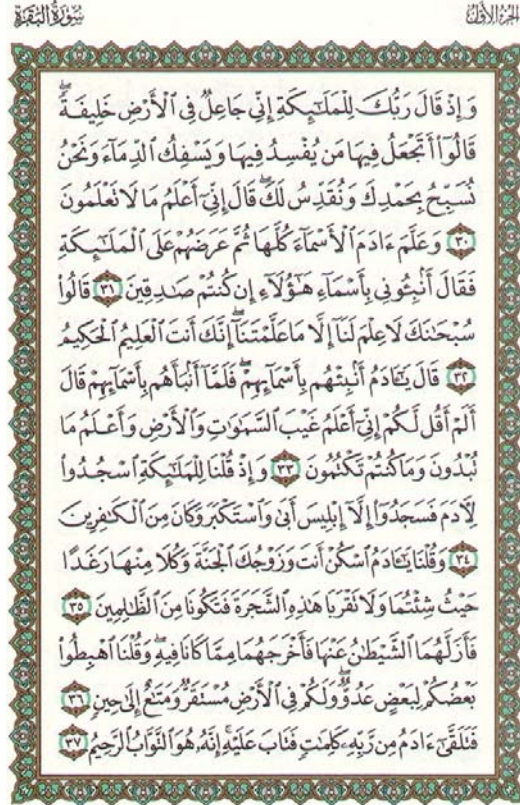 سُورَةُ البَقَرَةِ
الجُزءُ الأَوَّلُ
وَإِذْ قَالَ رَبُّكَ لِلْمَلَـٰٓئِكَةِ إِنِّى جَاعِلٌ فِى ٱلْأَرْضِ خَلِيفَةً ۖ
قَالُوٓا۟ أَتَجْعَلُ فِيهَا مَن يُفْسِدُ فِيهَا وَيَسْفِكُ ٱلدِّمَآءَ وَنَحْنُ
نُسَبِّحُ بِحَمْدِكَ وَنُقَدِّسُ لَكَ ۖ قَالَ إِنِّىٓ أَعْلَمُ مَا لَا تَعْلَمُونَ
٣٠ وَعَلَّمَ ءَادَمَ ٱلْأَسْمَآءَ كُلَّهَا ثُمَّ عَرَضَهُمْ عَلَى ٱلْمَلَـٰٓئِكَةِ
فَقَالَ أَنۢبِـُٔونِى بِأَسْمَآءِ هَـٰٓؤُلَآءِ إِن كُنتُمْ صَـٰدِقِينَ ٣١ قَالُوا۟
سُبْحَـٰنَكَ لَا عِلْمَ لَنَآ إِلَّا مَا عَلَّمْتَنَآ ۖ إِنَّكَ أَنتَ ٱلْعَلِيمُ ٱلْحَكِيمُ
٣٢ قَالَ يَـٰٓـَٔادَمُ أَنۢبِئْهُم بِأَسْمَآئِهِمْ ۖ فَلَمَّآ أَنۢبَأَهُم بِأَسْمَآئِهِمْ قَالَ
أَلَمْ أَقُل لَّكُمْ إِنِّىٓ أَعْلَمُ غَيْبَ ٱلسَّمَـٰوَٰتِ وَٱلْأَرْضِ وَأَعْلَمُ مَا
تُبْدُونَ وَمَا كُنتُمْ تَكْتُمُونَ ٣٣ وَإِذْ قُلْنَا لِلْمَلَـٰٓئِكَةِ ٱسْجُدُوا۟
لِـَٔادَمَ فَسَجَدُوٓا۟ إِلَّآ إِبْلِيسَ أَبَىٰ وَٱسْتَكْبَرَ وَكَانَ مِنَ ٱلْكَـٰفِرِينَ
٣٤ وَقُلْنَا يَـٰٓـَٔادَمُ ٱسْكُنْ أَنتَ وَزَوْجُكَ ٱلْجَنَّةَ وَكُلَا مِنْهَا رَغَدًا
حَيْثُ شِئْتُمَا وَلَا تَقْرَبَا هَـٰذِهِ ٱلشَّجَرَةَ فَتَكُونَا مِنَ ٱلظَّـٰلِمِينَ ٣٥
فَأَزَلَّهُمَا ٱلشَّيْطَـٰنُ عَنْهَا فَأَخْرَجَهُمَا مِمَّا كَانَا فِيهِ ۖ وَقُلْنَا ٱهْبِطُوا۟
بَعْضُكُمْ لِبَعْضٍ عَدُوٌّ ۖ وَلَكُمْ فِى ٱلْأَرْضِ مُسْتَقَرٌّ وَمَتَـٰعٌ إِلَىٰ حِينٍ ٣٦
فَتَلَقَّىٰٓ ءَادَمُ مِن رَّبِّهِۦ كَلِمَـٰتٍ فَتَابَ عَلَيْهِ ۚ إِنَّهُۥ هُوَ ٱلتَّوَّابُ ٱلرَّحِيمُ ٣٧